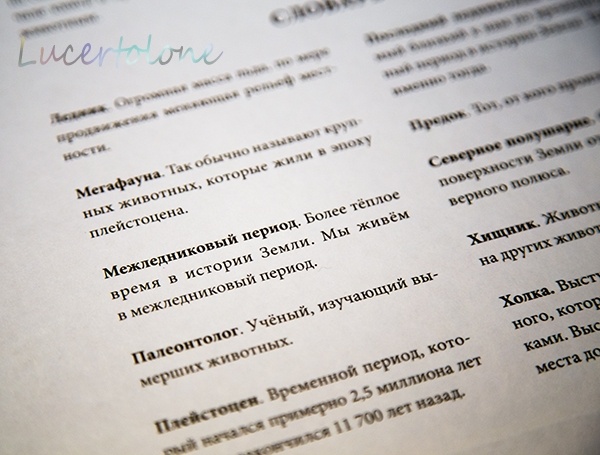 Lucertolone
СЛОВАР
Ледник. Огромная масса льда, по мере
продвижения меняющая рельеф мест-
ности.
Мегафауна. Так обычно называют круп-
ных животных, которые жили в эпоху
плейстоцена.
Межледниковый период. Более тёплое
время в истории Земли. Мы живём
в межледниковый период.
Палеонтолог. Учёный, изучающий вы-
мерших животных.
Плейстоцен. Временной период, кото-
рый начался примерно 2,5 миллиона лет
закончился 11 700 лет назад.
Последний
ный период в истории Земли.
именно тогда.
Предок. Тот, от кого прои
Северное полушарие.
поверхности Земли от
верного полюса.
Хищник. Живот
на других живот
Холка. Высту
ного, котор
ками. Выс
места до